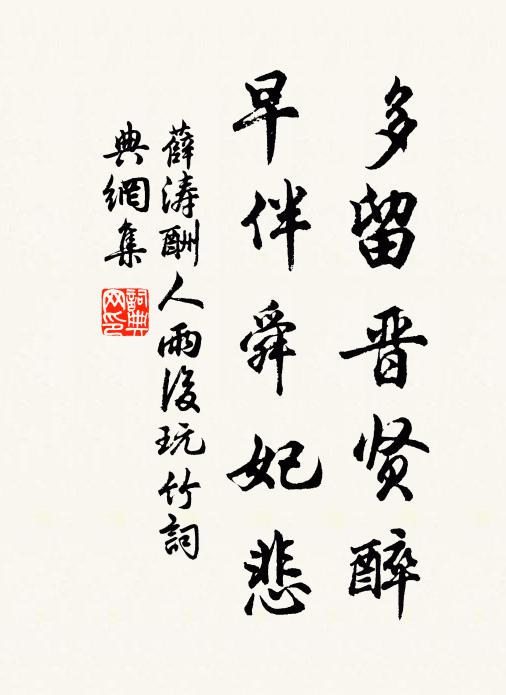 多留晋贤醉
早伴舜妃悲
薛涛酬人雨後玩竹詞
典網集
詞典
网印